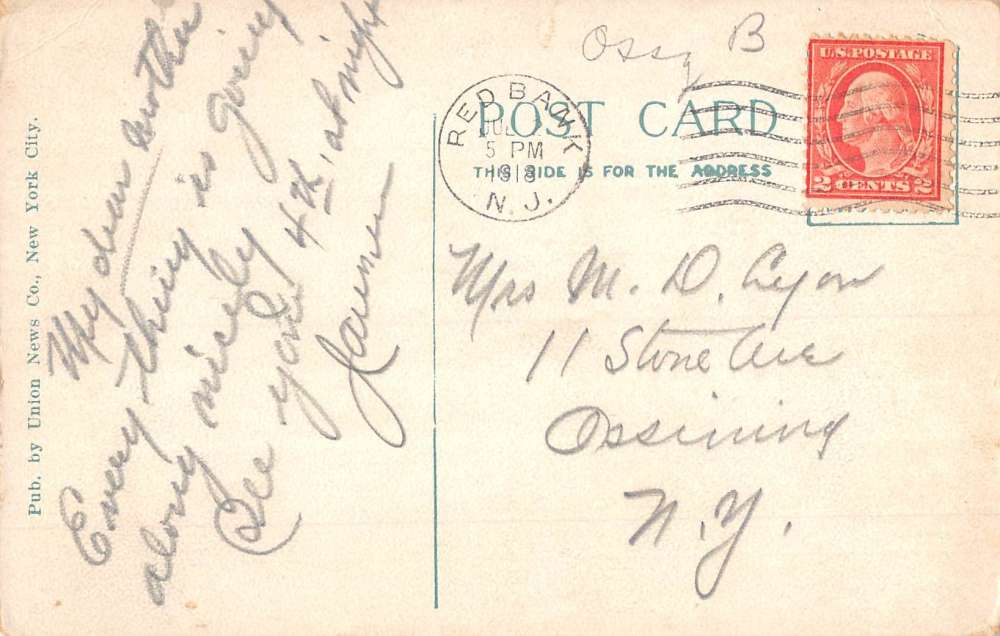 My dear mother
Every thing is going
along nicely
See you 4th, at night
Ossg B
U.S. POSTAGE
2 CENTS 2
RED BANK
JUL
5 PM
N.J.
POST CARD
THIS SIDE IS FOR THE ADDRESS
Mrs M. D. Lyon
11 Stone Ave
Ossining
N.Y.
Pub. by Union News Co., New York City.